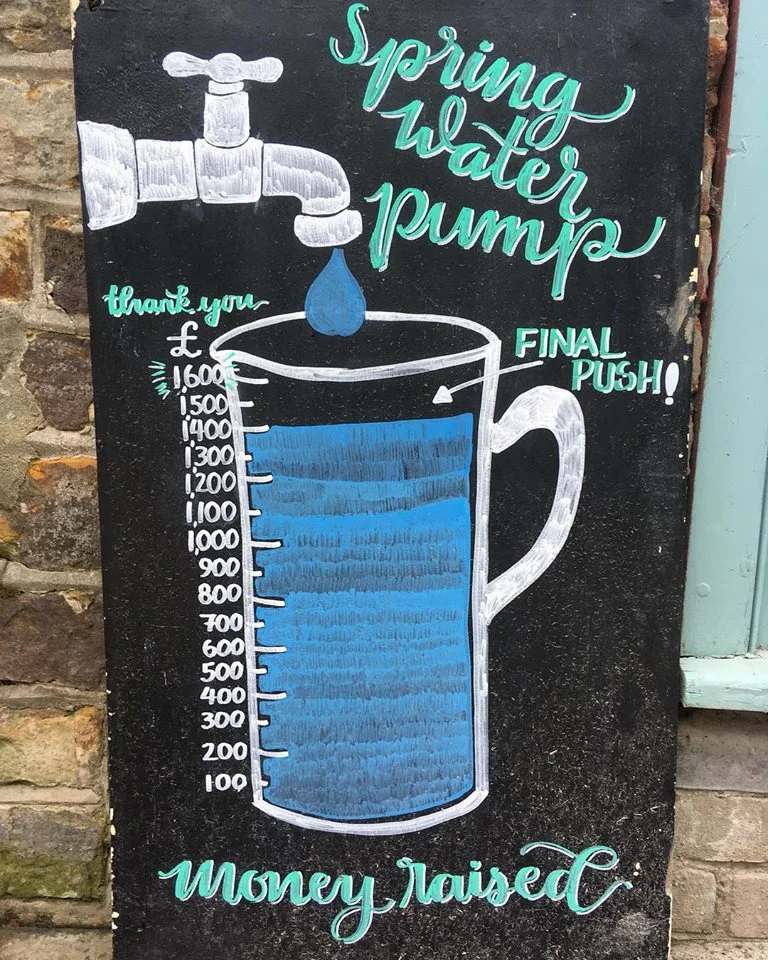 Spring
Water
pump
thank you
£
1,600
1,500
1,400
1,300
1,200
1,100
1,000
900
800
700
600
500
400
300
200
100
FINAL
PUSH!
money raised